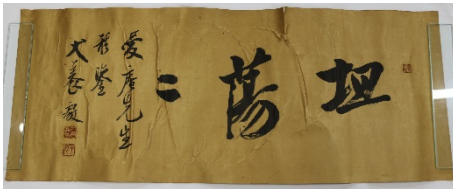 坦蕩〻
愛唐先生
雅鑒
犬養毅